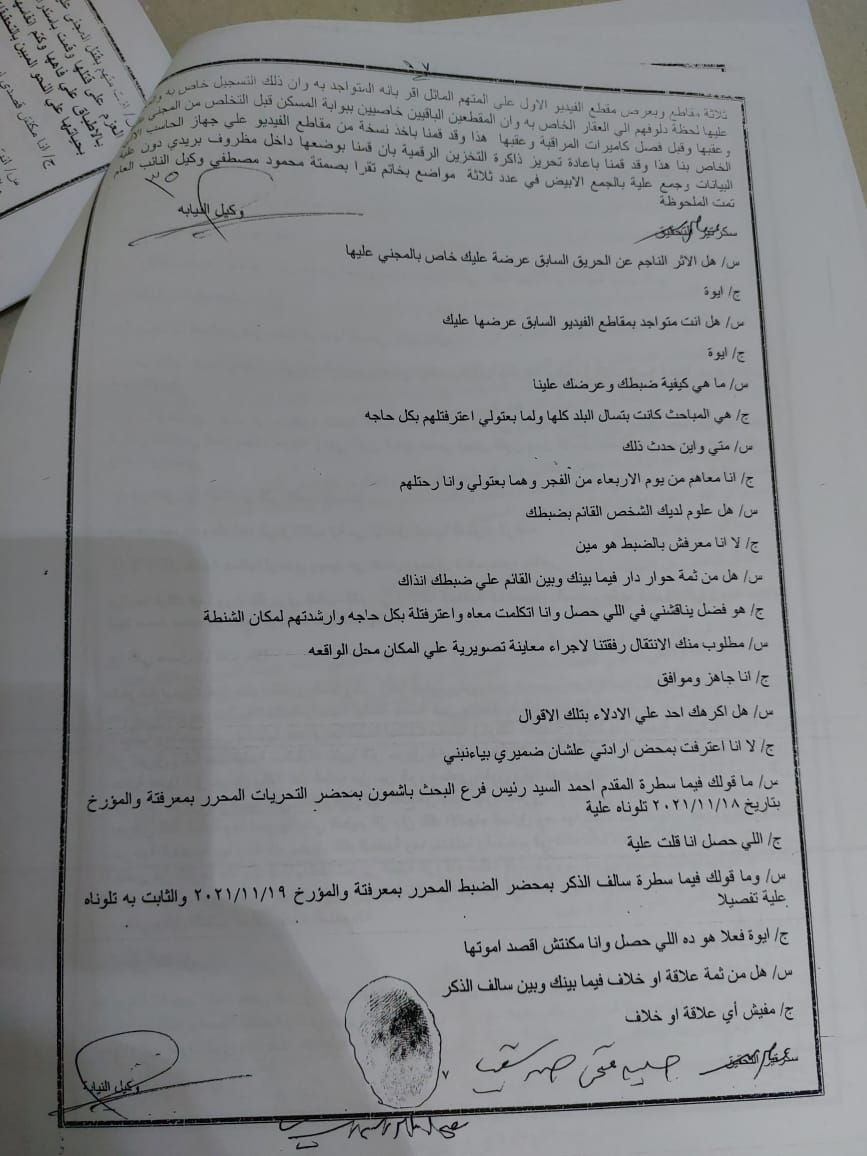 ٧
ثلاثة مقاطع وبعرض مقطع الفيديو الاول على المتهم الماثل اقر بانه المتواجد به وان ذلك التسجيل خاص به
عليها لحظة دلوفهم الي العقار الخاص به وان المقطعين الباقيين خاصيين ببوابة المسكن قبل التخلص من المجني
وعقبها وقبل فصل كاميرات المراقبة وعقبها هذا وقد قمنا باخذ نسخة من مقاطع الفيديو علي جهاز الحاسب
الخاص بنا هذا وقد قمنا باعادة تحريز ذاكرة التخزين الرقمية بان قمنا بوضعها داخل مظروف بريدي دون علية
البيانات وجمع علية بالجمع الابيض في عدد ثلاثة مواضع بخاتم تقرا بصمتة محمود مصطفي وكيل النائب العام
تمت الملحوظة
سكرتير التحقيق
وكيل النيابه
س/ هل الاثر الناجم عن الحريق السابق عرضة عليك خاص بالمجني عليها
ج/ ايوة
س/ هل انت متواجد بمقاطع الفيديو السابق عرضها عليك
ج/ ايوة
س/ ما هي كيفية ضبطك وعرضك علينا
ج/ هي المباحث كانت بتسال البلد كلها ولما بعتولي اعترفتلهم بكل حاجه
س/ متي واين حدث ذلك
ج/ انا معاهم من يوم الاربعاء من الفجر وهما بعتولي وانا رحتلهم
س/ هل علوم لديك الشخص القائم بضبطك
ج/ لا انا معرفش بالضبط هو مين
س/ هل من ثمة حوار دار فيما بينك وبين القائم علي ضبطك انذاك
ج/ هو فضل يناقشني في اللي حصل وانا اتكلمت معاه واعترفتلة بكل حاجه وارشدتهم لمكان الشنطة
س/ مطلوب منك الانتقال رفقتنا لاجراء معاينة تصويرية علي المكان محل الواقعه
ج/ انا جاهز وموافق
س/ هل اكرهك احد علي الادلاء بتلك الاقوال
ج/ لا انا اعترفت بمحض ارادتي علشان ضميري بياءنبني
س/ ما قولك فيما سطرة المقدم احمد السيد رئيس فرع البحث باشمون بمحضر التحريات المحرر بمعرفتة والمؤرخ
بتاريخ ٢٠٢١/١١/١٨ تلوناه علية
ج/ اللي حصل انا قلت علية
س/ وما قولك فيما سطرة سالف الذكر بمحضر الضبط المحرر بمعرفتة والمؤرخ ٢٠٢١/١١/١٩ والثابت به تلوناه
علية تفصيلا
ج/ ايوة فعلا هو ده اللي حصل وانا مكنتش اقصد اموتها
س/ هل من ثمة علاقة او خلاف فيما بينك وبين سالف الذكر
ج/ مفيش أي علاقة او خلاف
سكرتير التحقيق
٧
وكيل النيابة